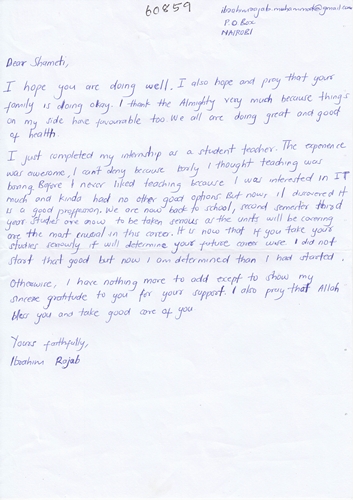 60859
ibrahimrajab.muhammad@gmail.com
P.O Box
NAIROBI
Dear Shameti,
I hope you are doing well. I also hope and pray that your
family is doing okay. I thank the Almighty very much because things
on my side have favourable too. We all are doing great and good
of health
I just completed my internship as a student teacher. The experience
was awesome, I cant deny because early I thought teaching was
boring. Before I never liked teaching because I was interested in IT
much and kinda had no other good options. But now, I discovered it
is a good proffession. We are now back to school, second semester third
year studies are now to be taken serious as the units will be covering
are the most crucial in this career. It is now that if you take your
studies seriously it will determine your future career wise. I did not
start that good but now I am determined than I had started.
Otherwise, I have nothing more to add exept to show my
sincere gratitude to you for your support. I also pray that Allah
bless you and take good care of you
Yours faithfully,
Ibrahim Rajab